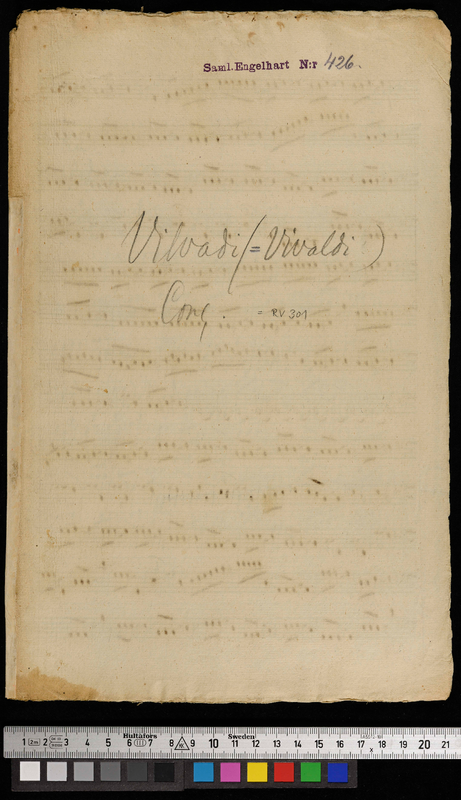 Saml. Engelhart N:r 426.
Vilvadi (= Vivaldi)
Conc. = RV 301
Hultafors Sweden
1 2 3 4 5 6 7 8 9 10 11 12 13 14 15 16 17 18 19 20 21